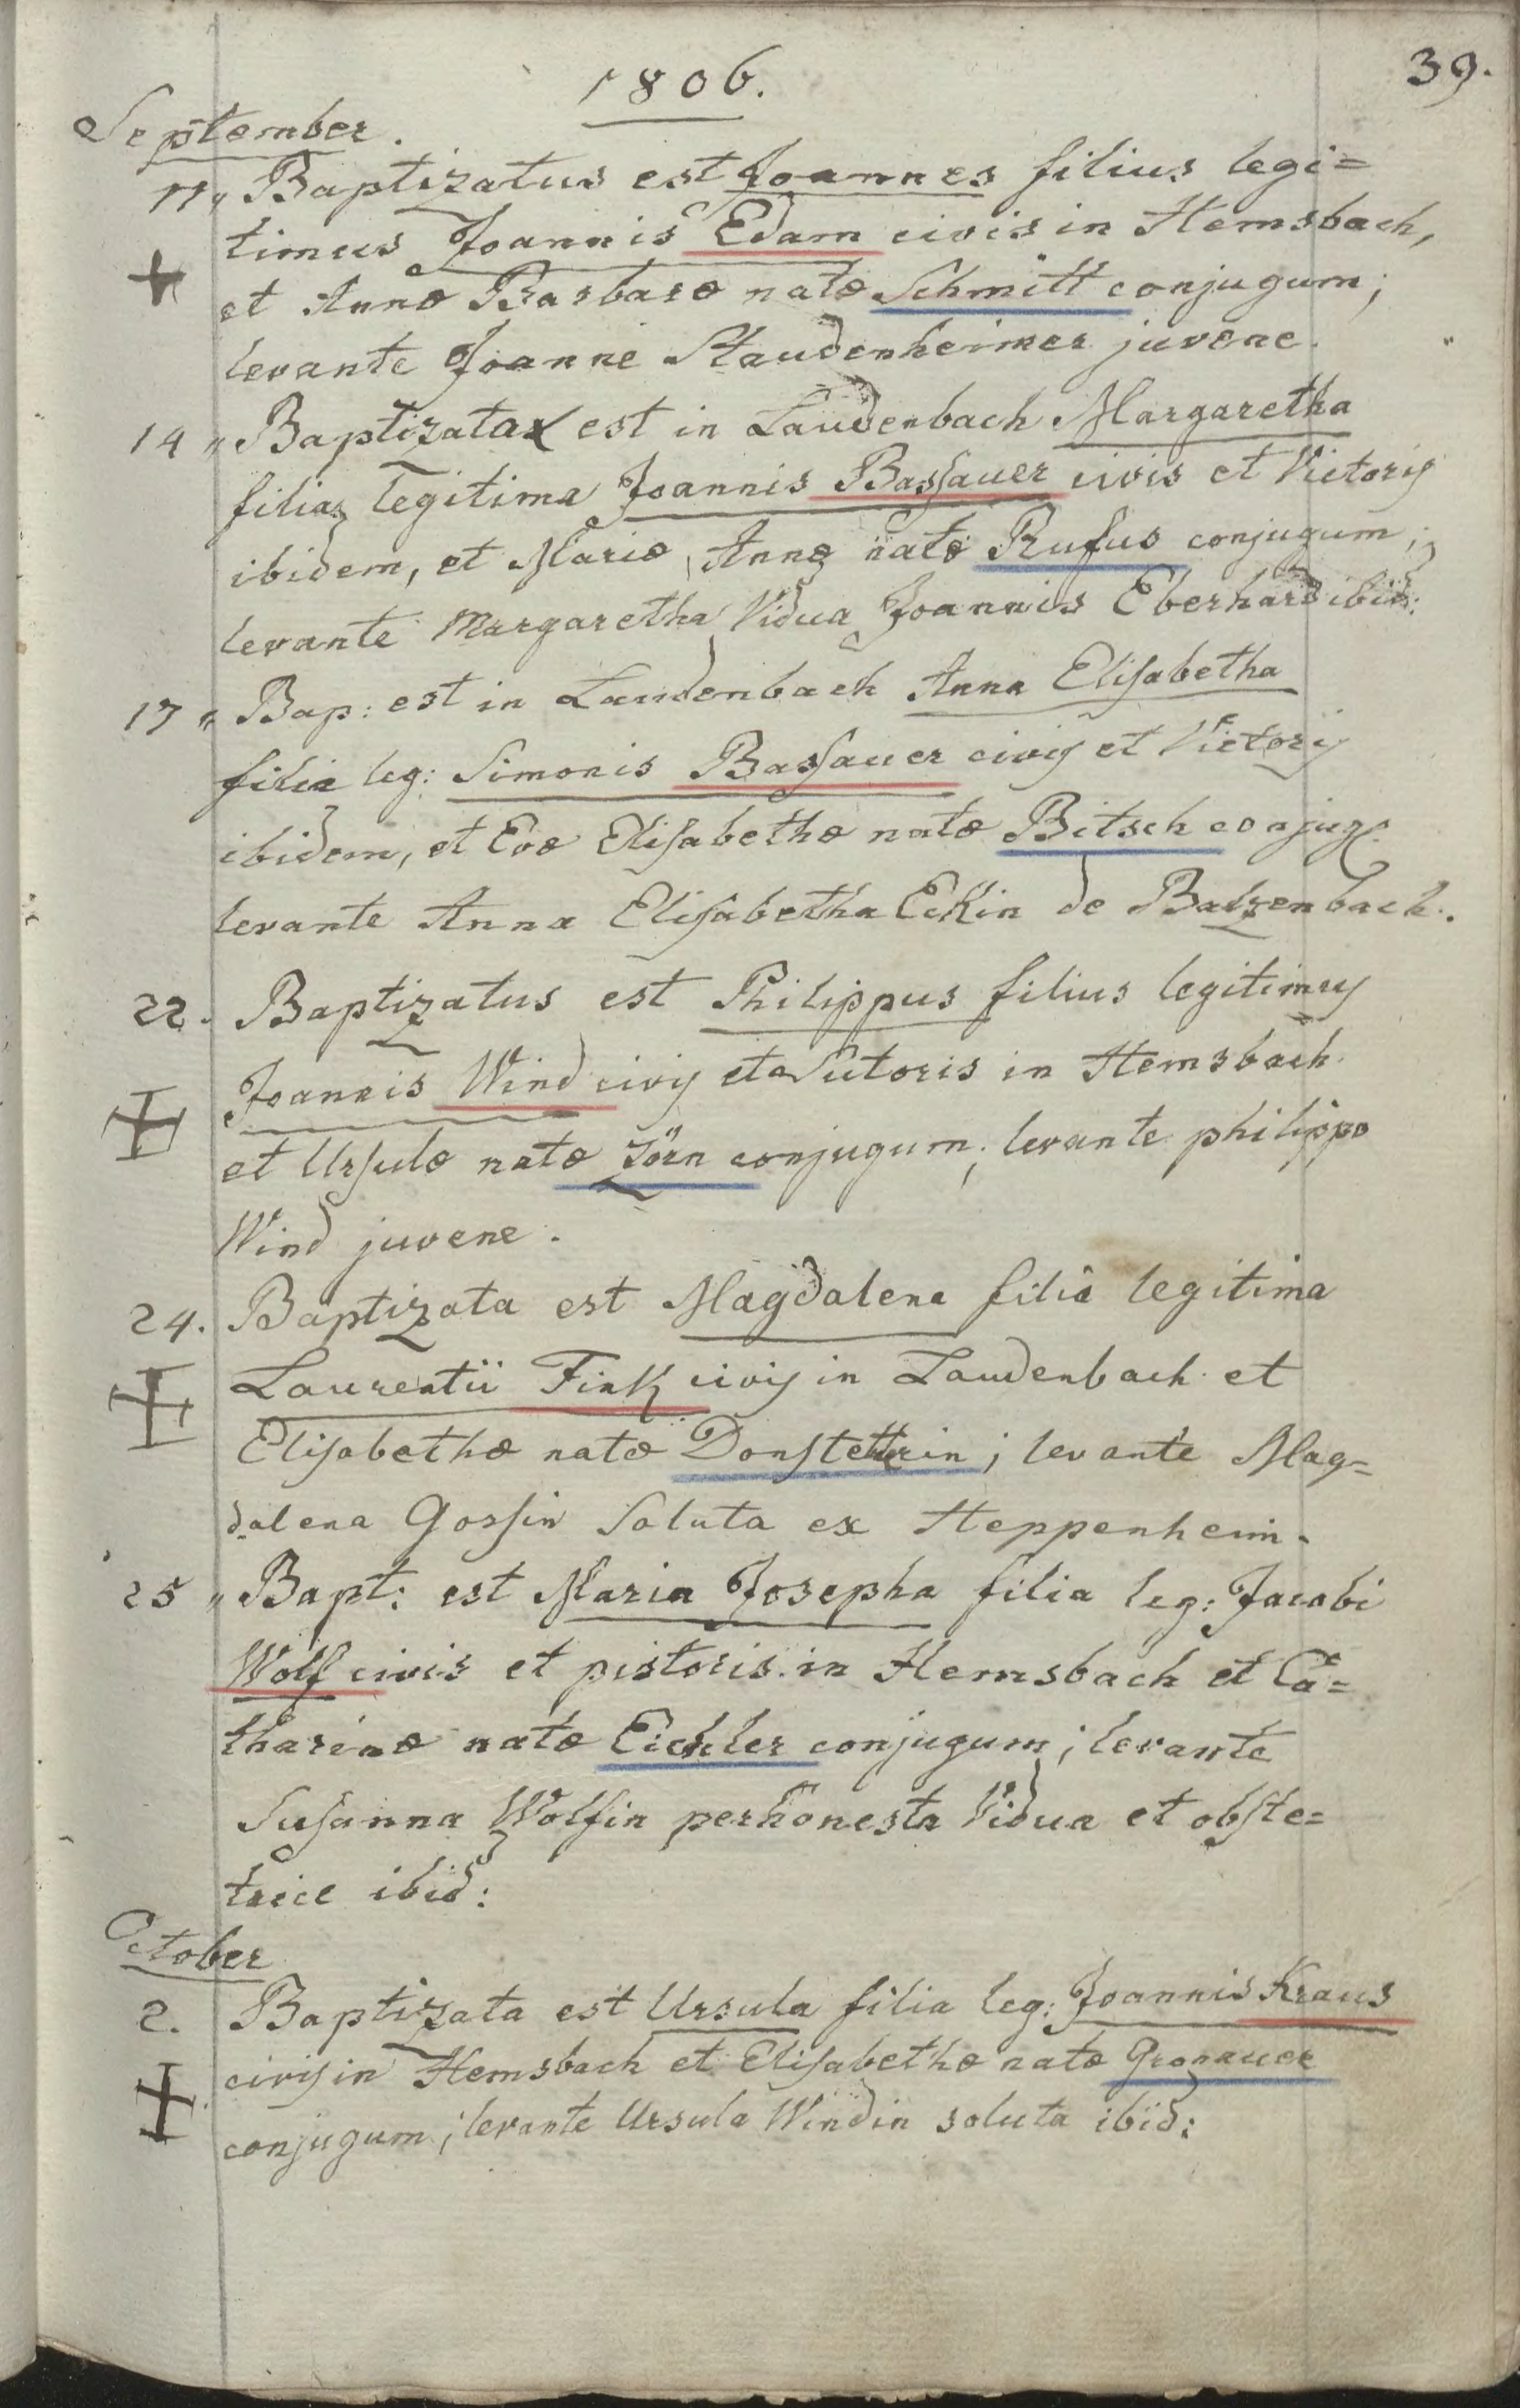 39.
1806.
September.
11„ Baptizatus est Joannes filius legi=
timus Joannis Edam civis in Hemsbach,
et Annæ Barbaræ natæ Schmitt conjugum;
levante Joanne Staudenheimer juvene.
14„ Baptizata est in Laudenbach Margaretha
filia legitima Joannis Bassauer civis et Vietoris
ibidem, et Mariæ Annæ natæ Rufus conjugum;
levante Margaretha Vidua Joannis Eberhard ibid:
17„ Bap: est in Laudenbach Anna Elisabetha
filia leg: Simonis Bassauer civis et Vietoris
ibidem, et Evæ Elisabethæ natæ Bitsch conjug.
levante Anna Elisabetha Eckin de Balzenbach.
22. Baptizatus est Philippus filius legitimus
Joannis Wind civis et Sutoris in Hemsbach
et Ursulæ natæ Zörn conjugum; levante philippo
Wind juvene.
24. Baptizata est Magdalena filia legitima
Laurentii Fink civis in Laudenbach et
Elisabethæ natæ Donstettrin; levante Mag=
dalena Gossin Soluta ex Heppenheim.
25„ Bapt: est Maria Josepha filia leg: Jacobi
Wolf civis et pistoris in Hemsbach et Ca=
tharinæ natæ Eichler conjugum; levante
Susanna Wolfin perhonesta Vidua et obste=
trice ibid:
October
2. Baptizata est Ursula filia leg: Joannis Kraus
civis in Hemsbach et Elisabethæ natæ Gronauer
conjugum; levante Ursula Windin soluta ibid: